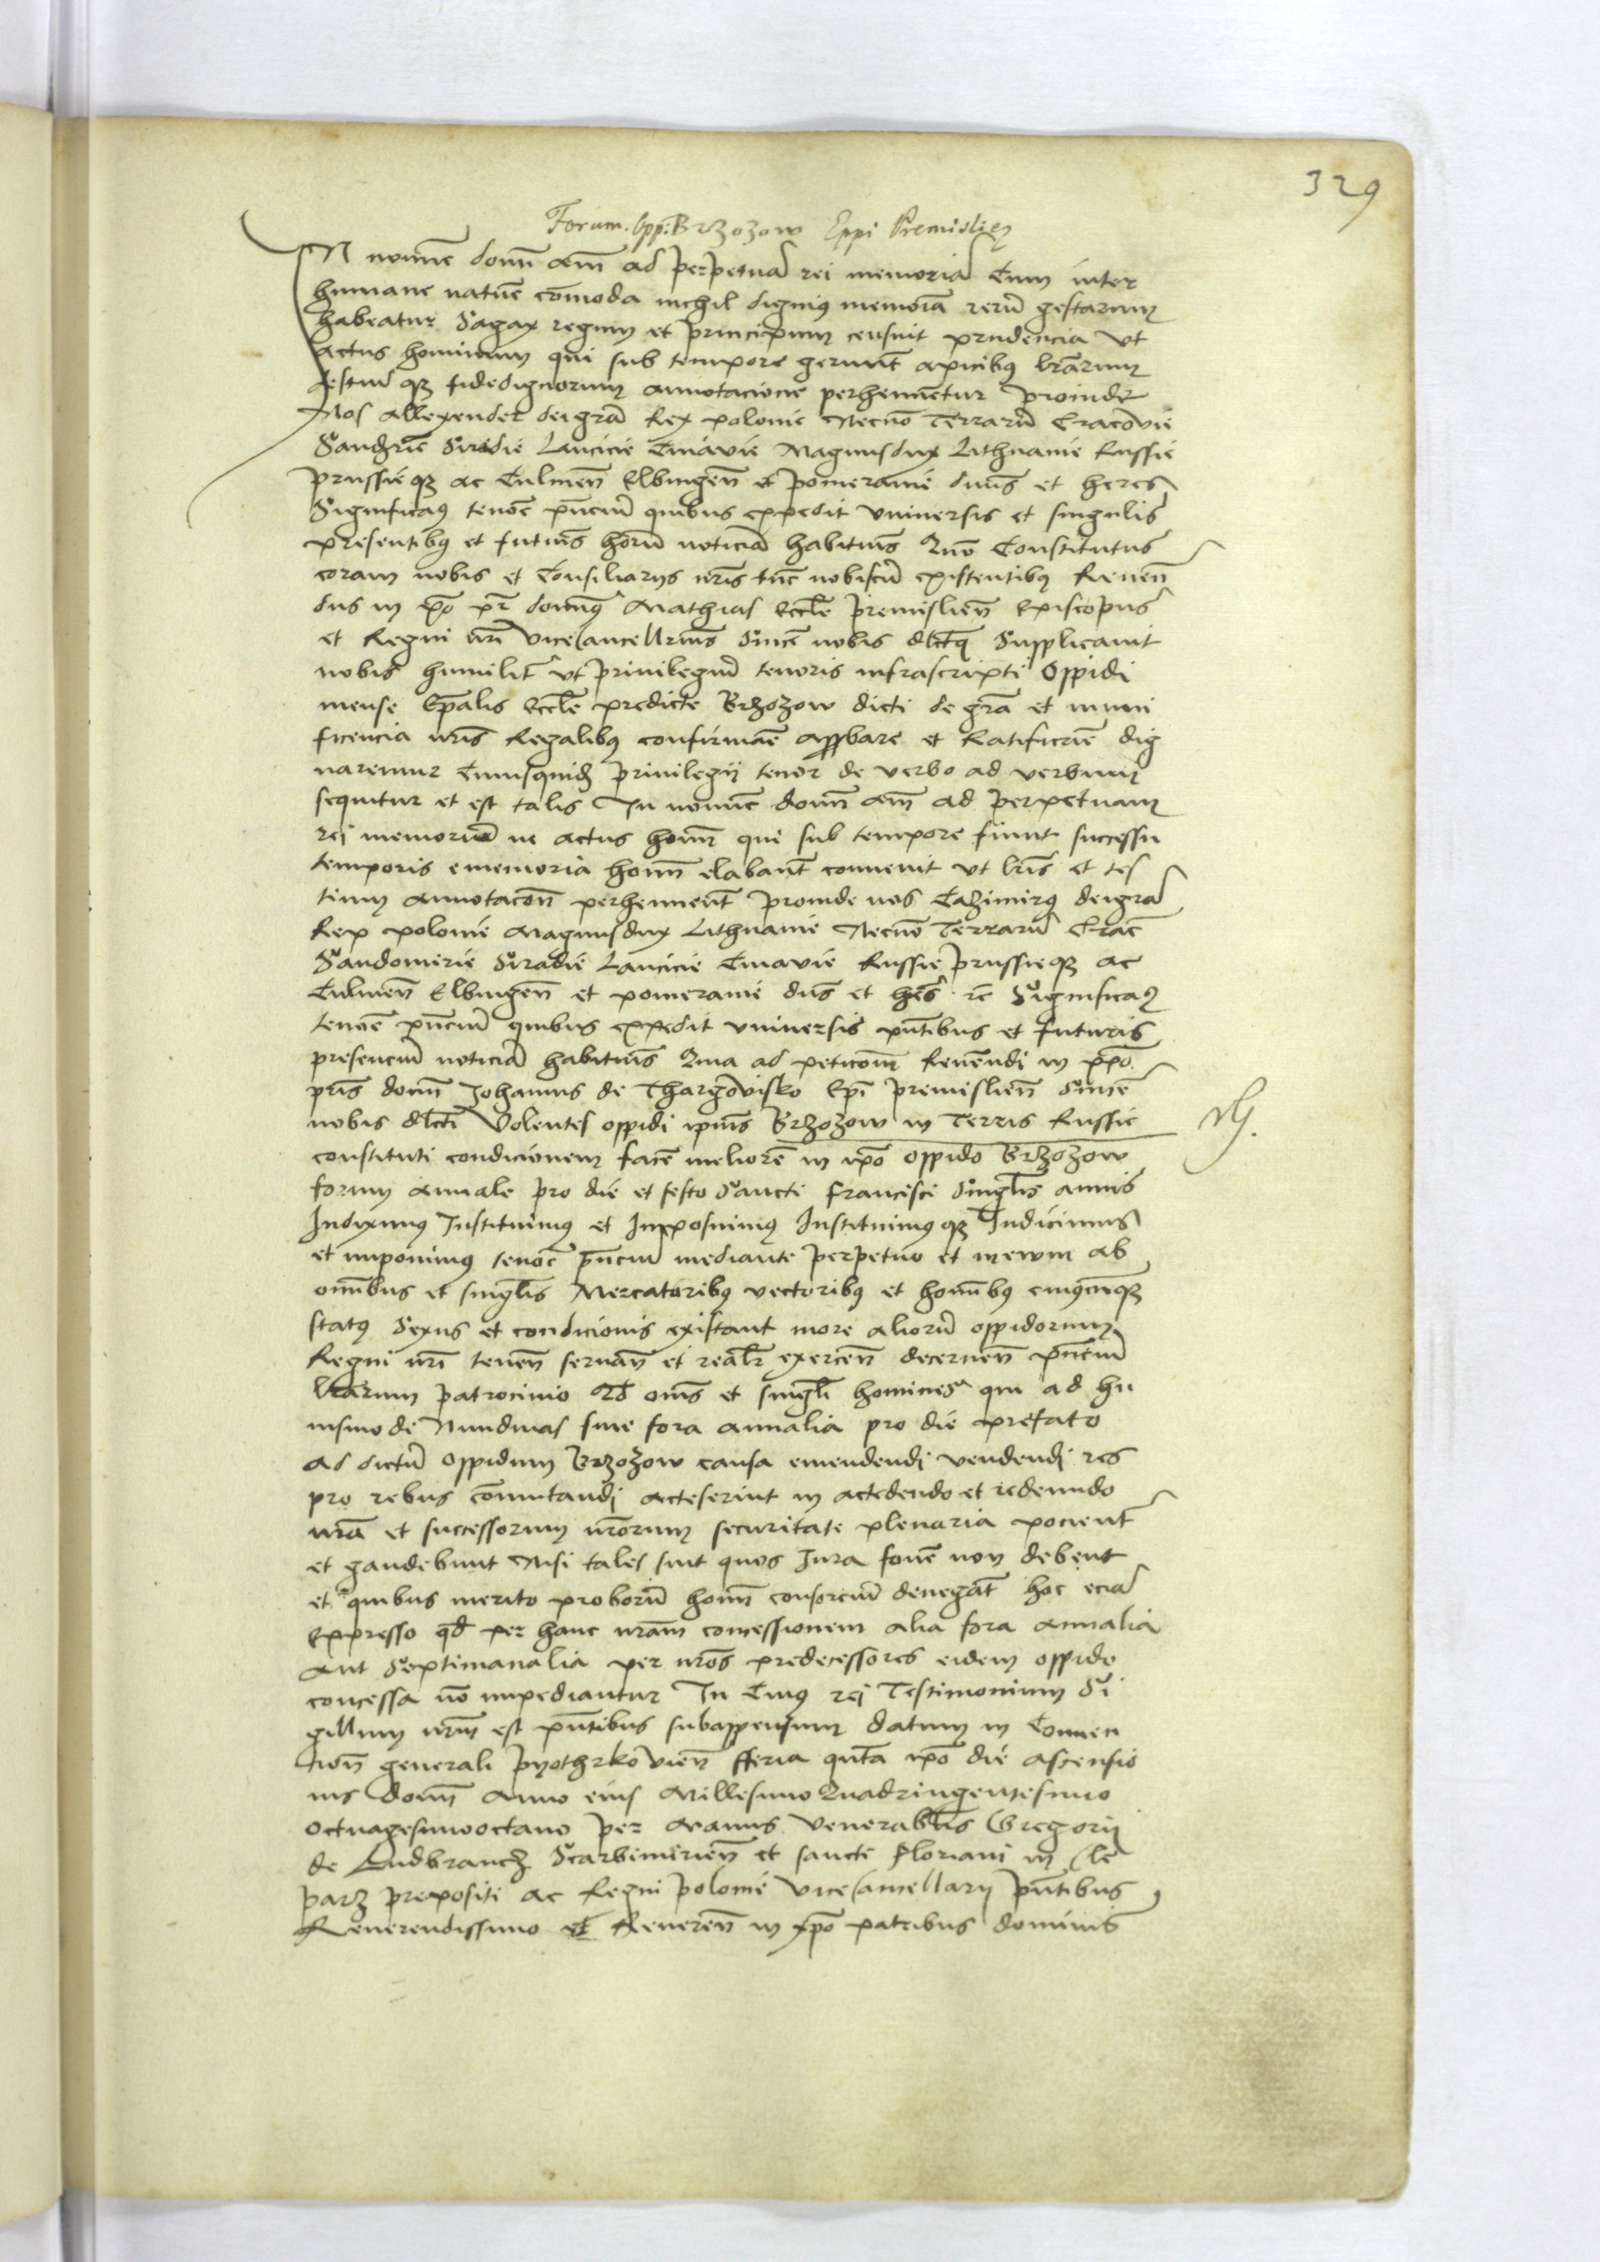 329
Forum. opp. Brzozow Eppi Premislien
IN nomīe domī amē ad perpetuā rei memoriā Cum inter
humane natuře cōmoda nichil dignius memoria rerū gestarum
habeatur Sagax regum et principum censuit prudencia vt
actus hominum qui sub tempore gerunt apicibus lrārum
testiūqz fidedignorum annotacione perhennentur Proinde
Nos Allexander dei grā Rex polonie Necnō Terrarū Cracovie
Sandoriē Siradie Lancicie Cuiavie Magnusdux Lithuanie Russie
prussieqz ac Culmeñ Elbingeñ et pomeranie dūs et heres
Significaꝰ tenoē pñciū quibus expedit vniversis et singulis
presentibꝰ et futuris horū noticiā habituris Quō Constitutus
coram nobis et Consiliarijs nr̄is tūc nobiscū existentibꝰ Reueñ
dus in xp̄o pr̄ domīꝰ Mathias Eccl̄e premislieñ Episcopus
et Regni nr̄i vicecancellariꝰ Sincē nobis dlctꝰ Supplicauit
nobis humilit̄ vt priuilegiū tenoris infrascripti Oppidi
mense Ep̄alis Eccl̄e predicte Brzozow dicti de grā et muni
ficencia nr̄is Regalibꝰ confirmāe approbare et Ratificāe dig
naremur Cuiusquidē priuilegij tenor de verbo ad verbum
sequitur et est talis In nomīe domī amē ad perpetuam
rei memoriā ne actus homī que sub tempore fiunt successu
temporis ememoria homī elabant̄ conuenit vt lr̄is et tes
tium annotacōe perhennent̄ proinde nos Cazimirꝰ dei grā
Rex polonie Magnusdux Lithuanie Necnō Terrarū Crac̄
Sandomirie Siradie Lancicie Cuiavie Russie prussieqz ac
Culmeñ Elbingeñ et pomeranie dūs et hēs rc̄ Significaꝰ
tenoē pñciū quibus expedit vniversis pñtibus et futuris
presenciū noticiā habituris Quia ad peticōem Reueñdi in xp̄o
pr̄is domī Johannis de Thargovisko Ep̄i premislieñ Sincē
nobis dlcti Volentes oppidi ip̄ius Brzozow in Terris Russie
constituti condicionem facē meliorē in ip̄o oppido Brzozow
forum annale pro die et festo Sancti francisci Singl̄is annis
Indiximus Instituimꝰ et Imposuimꝰ Instituimusqz Indicimus
et imponimꝰ tenoē pñciū mediante perpetuo et in evum ab
om̄ibus et singl̄is Mercatoribꝰ vectoribꝰ et homībꝰ cuiꝰcūqz
statꝰ Sexus et condicionis existant more aliorū oppidorum
Regni nr̄i teneñ seruañ et realr̄ exerceñ decerneñ pñciū
lrārum patrocinio Qđ om̄s et singl̄i homines qui ad hu
iusmodi Nundinas siue fora annalia pro die prefato
ad dictū oppidum Brzozow causa emendendi vendendi res
pro rebus cōmutandi accesserint in accedendo et redeundo
nr̄a et successorum nr̄orum securitate plenaria pocient̄
et gaudebunt Nisi tales sint quos Iura fouē non debent
et quibus merito proborū homī consorciū denegat̄ hoc eciā
Expresso qđ per hanc nr̄am concessionem alia fora annalia
aut Septimanalia per nr̄os predecessores eidem oppido
concessa nō impediantur In Cuiꝰ rei Testimonium Si
gillum nr̄m est pñtibus subappensum datum in Conuen
cione generali pyothrkovieñ fferia qnta ip̄o die ascensio
nis domī Anno eius Millesimo Quadringentesimo
octuagesimooctauo per manus venerabl̄is Gregorij
de Ludbrancz Scarbimirieñ et sancti floriani in Cle
parz prepositi ac Regni polonie vicecancellarij pñtibus
Reuerendissimo et Reuereñ in xp̄o patribus dominis